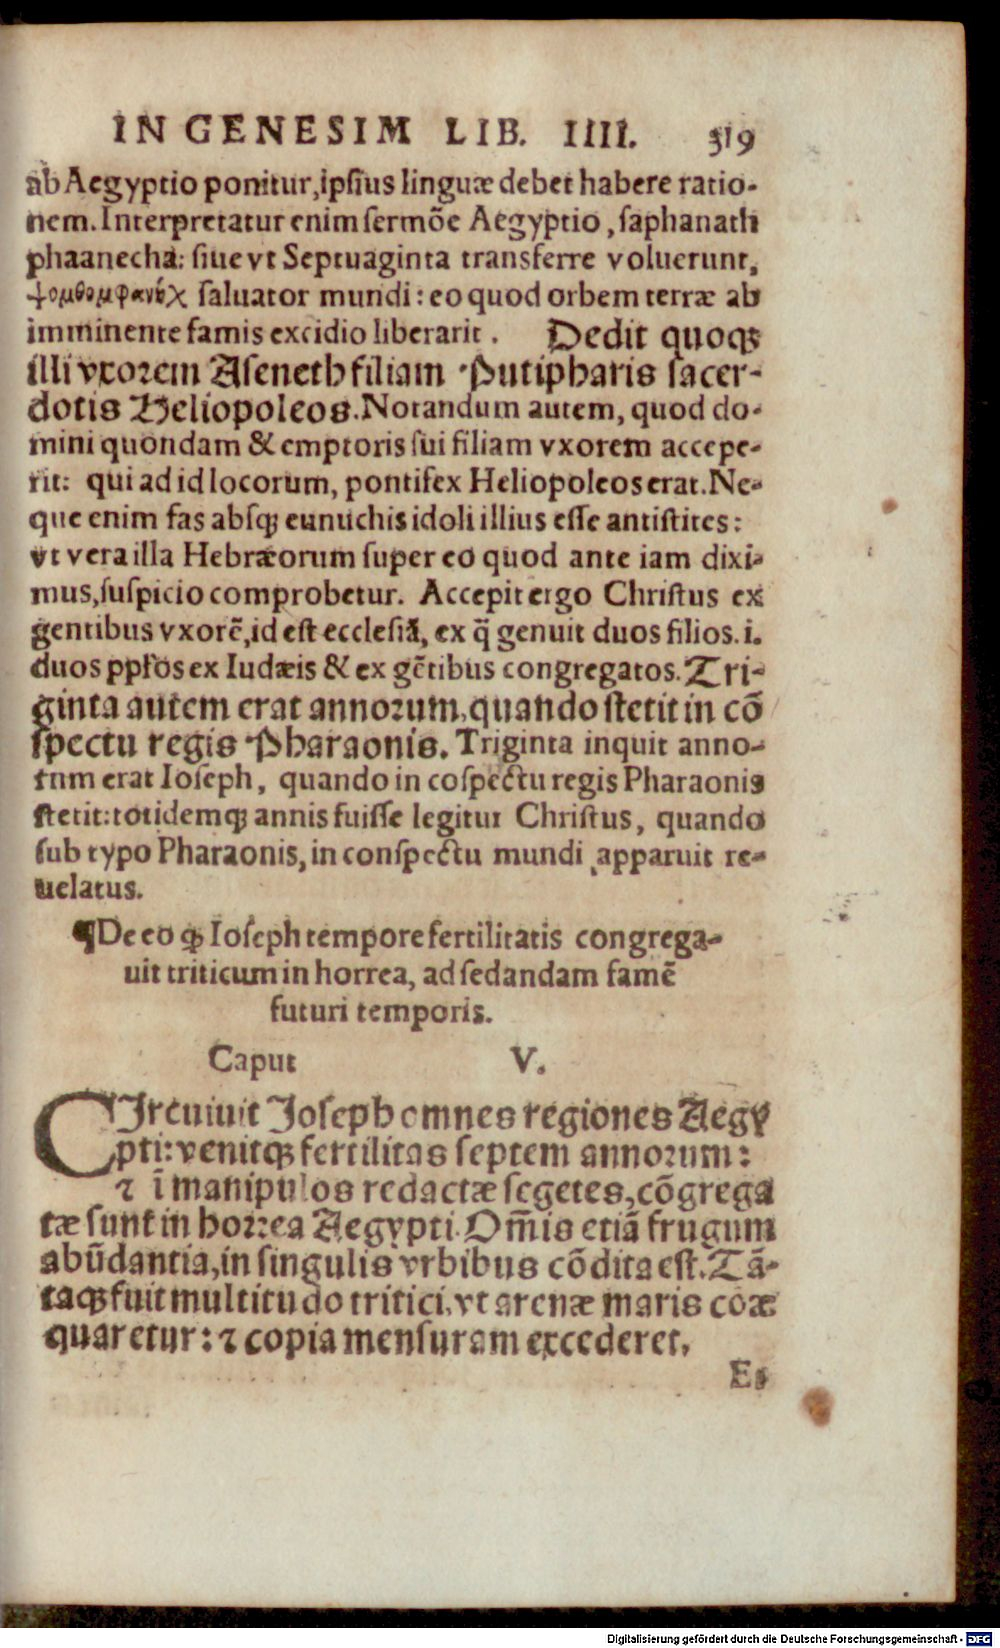 IN GENESIM LIB. IIII. 319
ab Aegyptio ponitur, ipſius linguæ debet habere ratio-
nem. Interpretatur enim ſermõe Aegyptio, ſaphanath
phaanecha: ſiue vt Septuaginta transferre voluerunt,
ψομθομφανὲχ ſaluator mundi: eo quod orbem terræ ab
imminente famis excidio liberarit. Dedit quoqꝫ
illi vxorem Aſeneth filiam Putipharis ſacer-
dotis Heliopoleos. Notandum autem, quod do-
mini quondam & emptoris ſui filiam vxorem accepe-
rit: qui ad id locorum, pontifex Heliopoleos erat. Ne-
que enim fas abſqꝫ eunuchis idoli illius eſſe antiſtites:
vt vera illa Hebræorum ſuper eo quod ante iam dixi-
mus, ſuſpicio comprobetur. Accepit ergo Chriſtus ex
gentibus vxorẽ, id eſt eccleſiã, ex q̃ genuit duos filios. i.
duos ppłos ex Iudæis & ex gẽtibus congregatos. Tri-
ginta autem erat annorum, quando ſtetit in cõ
ſpectu regis Pharaonis. Triginta inquit anno-
rum erat Ioſeph, quando in coſpectu regis Pharaonis
ſtetit: totidemqꝫ annis fuiſſe legitur Chriſtus, quando
ſub typo Pharaonis, in conſpectu mundi apparuit re-
uelatus.
¶De eo ꝙ Ioſeph tempore fertilitatis congrega-
uit triticum in horrea, ad ſedandam famẽ
futuri temporis.
Caput V.
CIrcuiuit Ioſeph omnes regiones Aegy
pti: venitqꝫ fertilitas ſeptem annorum:
⁊ ĩ manipulos redactæ ſegetes, cõgrega
tæ ſunt in horrea Aegypti. Om̃is etiã frugum
abũdantia, in ſingulis vrbibus cõdita eſt. Tã-
taqꝫ fuit multitudo tritici, vt arenæ maris coæ
quaretur: ⁊ copia menſuram excederet.
Digitalisierung gefördert durch die Deutsche Forschungsgemeinschaft - DFG